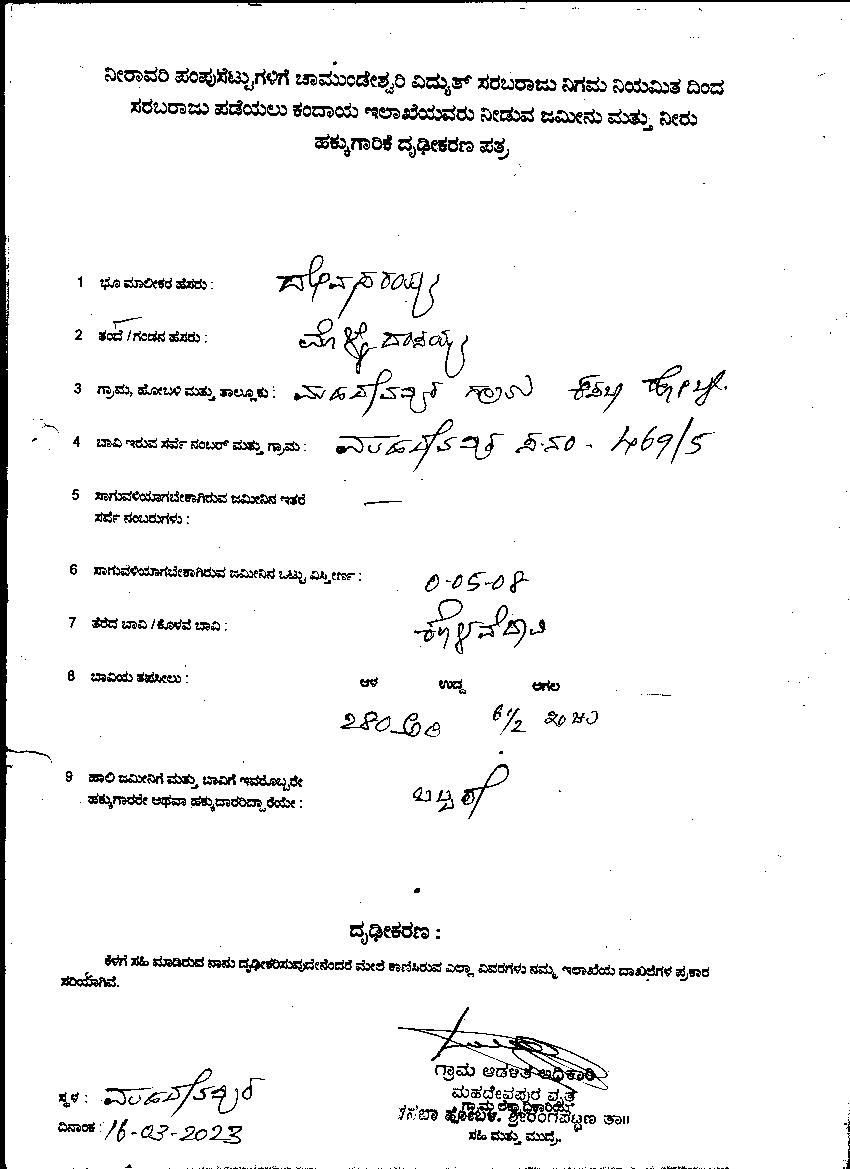 ನೀರಾವರಿ ಪಂಪುಸೆಟ್ಟುಗಳಿಗೆ ಚಾಮುಂಡೇಶ್ವರಿ ವಿದ್ಯುತ್ ಸರಬರಾಜು ನಿಗಮ ನಿಯಮಿತ ದಿಂದ
ಸರಬರಾಜು ಪಡೆಯಲು ಕಂದಾಯ ಇಲಾಖೆಯವರು ನೀಡುವ ಜಮೀನು ಮತ್ತು ನೀರು
ಹಕ್ಕುಗಾರಿಕೆ ದೃಢೀಕರಣ ಪತ್ರ
1 ಭೂ ಮಾಲೀಕರ ಹೆಸರು :
2 ತಂದೆ / ಗಂಡನ ಹೆಸರು :
3 ಗ್ರಾಮ, ಹೋಬಳಿ ಮತ್ತು ತಾಲ್ಲೂಕು : ಮಹದೇವಪುರ ಗ್ರಾಮ ಕಸಬಾ ಹೋಬಳಿ.
4 ಬಾವಿ ಇರುವ ಸರ್ವೆ ನಂಬರ್ ಮತ್ತು ಗ್ರಾಮ : ಮಹದೇವಪುರ ಸ.ನಂ - 469/5
5 ಸಾಗುವಳಿಯಾಗಬೇಕಾಗಿರುವ ಜಮೀನಿನ ಇತರೆ
ಸರ್ವೆ ನಂಬರುಗಳು : —
6 ಸಾಗುವಳಿಯಾಗಬೇಕಾಗಿರುವ ಜಮೀನಿನ ಒಟ್ಟು ವಿಸ್ತೀರ್ಣ : 0-05-08
7 ತೆರೆದ ಬಾವಿ / ಕೊಳವೆ ಬಾವಿ : ಕೊಳವೆಬಾವಿ
8 ಬಾವಿಯ ತಪಸೀಲು : ಆಳ ಉದ್ದ ಅಗಲ
280 ಅಡಿ 6 1/2 ಇಂಚು
9 ಹಾಲಿ ಜಮೀನಿಗೆ ಮತ್ತು ಬಾವಿಗೆ ಇವರೊಬ್ಬರೇ
ಹಕ್ಕುಗಾರರೇ ಅಥವಾ ಹಕ್ಕುದಾರರಿದ್ದಾರೆಯೇ : ಒಬ್ಬರೇ
ದೃಢೀಕರಣ :
ಕೆಳಗೆ ಸಹಿ ಮಾಡಿರುವ ನಾನು ದೃಢೀಕರಿಸುವುದೇನೆಂದರೆ ಮೇಲೆ ಕಾಣಿಸಿರುವ ಎಲ್ಲಾ ವಿವರಗಳು ನಮ್ಮ ಇಲಾಖೆಯ ದಾಖಲೆಗಳ ಪ್ರಕಾರ
ಸರಿಯಾಗಿವೆ.
ಗ್ರಾಮ ಆಡಳಿತ ಅಧಿಕಾರಿ
ಮಹದೇವಪುರ ವೃತ್ತ
ಗ್ರಾಮ ಲೆಕ್ಕಾಧಿಕಾರಿಯ
ಕಸಬಾ ಹೋಬಳಿ. ಶ್ರೀರಂಗಪಟ್ಟಣ ತಾ॥
ಸಹಿ ಮತ್ತು ಮುದ್ರೆ.
ಸ್ಥಳ : ಮಹದೇವಪುರ
ದಿನಾಂಕ : 16-03-2023